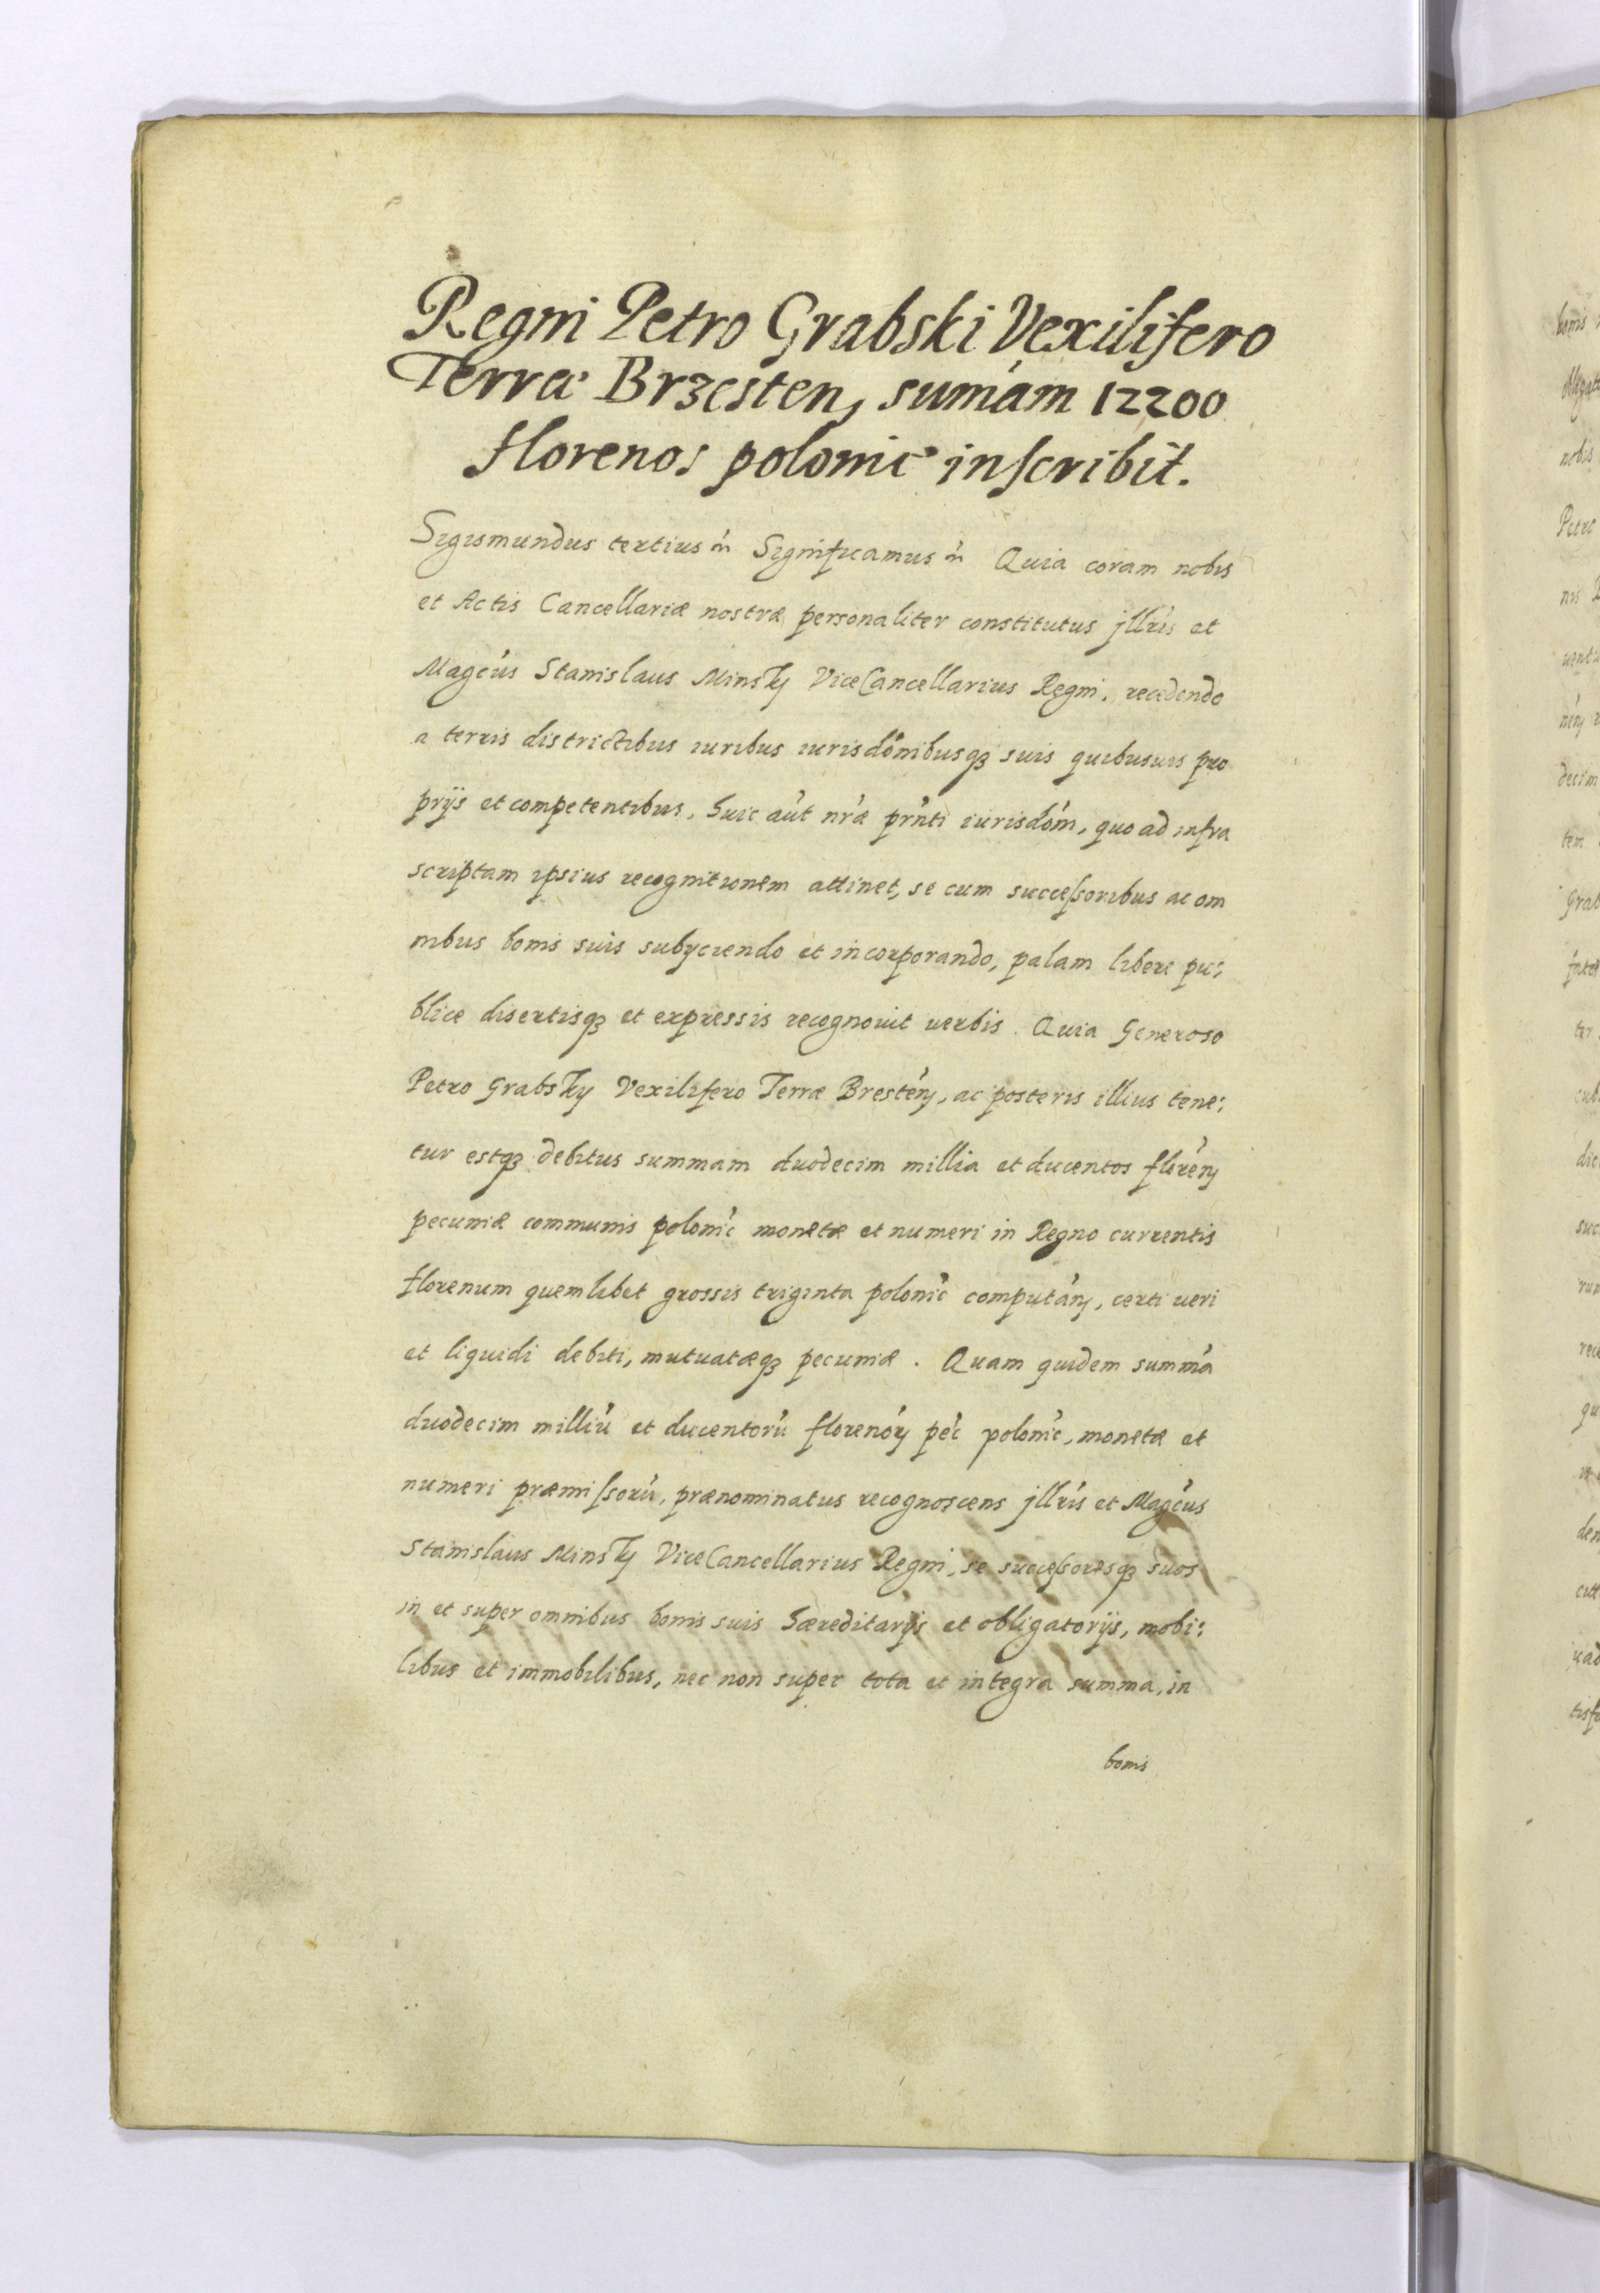 Regni Petro Grabski Vexilifero
Terræ Brzesten, sumám 12200
florenos polonić inscribit.
Sigismundus tertius ḿ Significamus ḿ Quia coram nobis
et Actis Cancellariæ nostræ personaliter constitutus jllrís et
Magćus Stanislaus Minsky ViceCancellarius Regni, recedendo
a terris districtibus iuribus iurisdónibusqꝫ suis quibusuis pro
prijs et competentibus, huic aút nŕæ prńti iurisdóni, quo ad infra
scriptam ipsius recognitionem attinet, se cum successoribus ac om
nibus bonis suis subyciendo et incorporando, palam libere pu:
blice disertisqꝫ et expressis recognouit uerbis. Quia Generoso
Petro Grabsky Vexilifero Terræ Bresteń, ac posteris illius tene:
tur estqꝫ debitus summam duodecim millia et ducentos floreń
pecuniæ communis polonić monetæ et numeri in Regno currentis
florenum quemlibet grossis triginta polonić computań, certi ueri
et liquidi debiti, mutuatæqꝫ pecuniæ. Quam quidem summá
duodecim milliú et ducentorú florenorý peć polonić, monetæ et
numeri præmissorú, prænominatus recognoscens jllrís et Magćus
Stanislaus Minsky ViceCancellarius Regni, se successoresqꝫ suos
in et super omnibus bonis suis hæreditarijs et obligatorijs, mobi:
libus et immobilibus, nec non super tota et integra summa, in
bonis